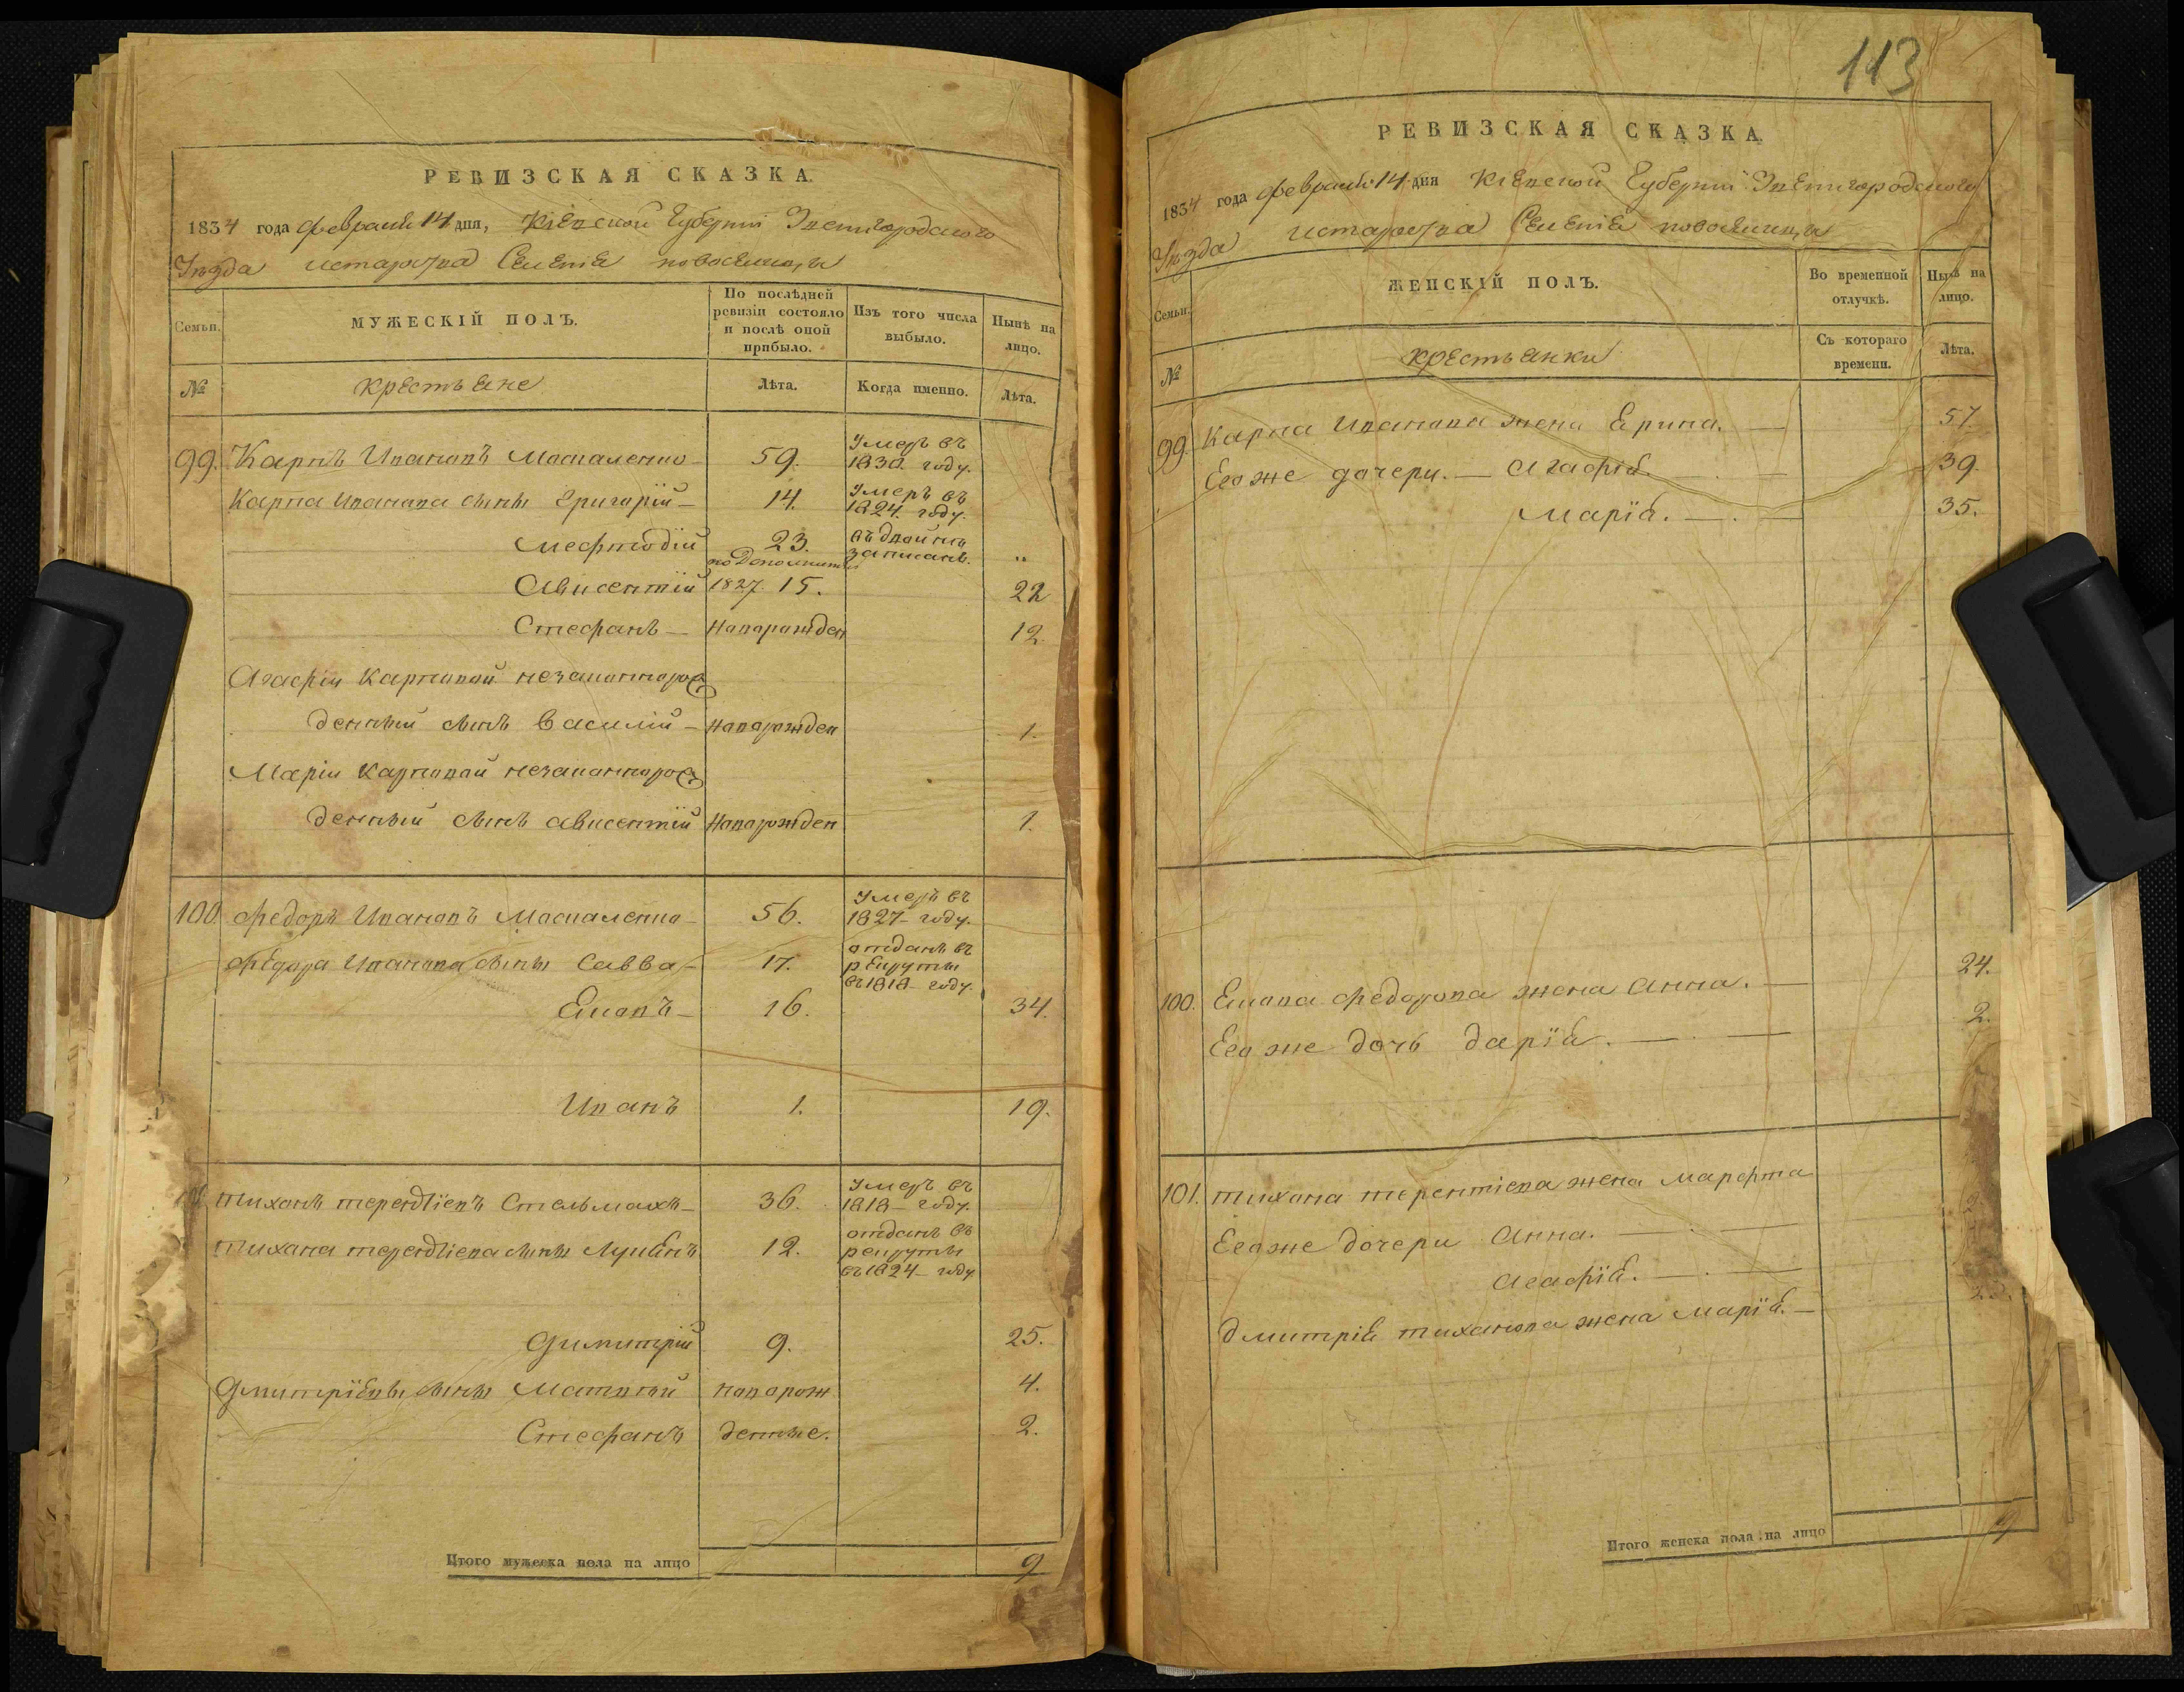 РЕВИЗСКАЯ СКАЗКА.
1834 года февраля 14 дня, Кіевской Губерніи Звенигородского
Уѣзда староства Селенія новоселицы
Семьи.
МУЖЕСКІЙ ПОЛЪ.
По послѣдней ревизіи состояло и послѣ оной прибыло.
Изъ того числа выбыло.
Нынѣ на лицо.
№
крестьяне
Лѣта.
Когда именно.
Лѣта.
99. Карпъ Ивановъ Москаленко 59. Умеръ въ 1830 году.
Карпа Иванова сыны Григорій 14. Умеръ въ 1824. году.
Мефтодій 23. въ двойнѣ записанъ. „
по Дополнит
Авксентій 1827. 15. 22
Стефанъ новорожден 12.
Агафіи Карповой незаконнорож
денный сынъ Василій новорожден 1.
Маріи Карповой незаконнорож
денный сынъ Авксентій новорожден 1.
100 Федоръ Ивановъ Москаленко 56. Умеръ въ 1827 году.
Федора Иванова сыны Савва 17. отданъ въ рекруты въ 1818 году.
Яковъ 16. 34.
Иванъ 1. 19.
Тихонъ терентіевъ Стельмахъ 36. Умеръ въ 1818 году.
Тихона терентіева сыны Лукіянъ 12. отданъ въ рекруты въ 1824 году
Димитрій 9. 25.
Дмитріевы сыны Матвѣй новорож 4.
Стефанъ денные. 2.
Итого мужеска пола на лицо 9
113
РЕВИЗСКАЯ СКАЗКА.
1834 года февраля 14 дня Кіевской Губерніи Звенигородского
Уѣзда староства Селенія новоселицы
Семьи.
ЖЕНСКІЙ ПОЛЪ.
Во временной отлучкѣ.
Нынѣ на лицо.
№
крестьянки
Съ котораго времени.
Лѣта.
99. Карпа Иванова жена Ярина. 57.
Его же дочери. Агафія 39.
Марія. 35.
100. Якова Федорова жена Анна. 24.
Его же дочь дарія. 2.
101. Тихона терентіева жена Марфта
Его же дочери Анна.
Агафія.
Дмитрія тихонова жена Марія.
Итого женска пола на лицо 9